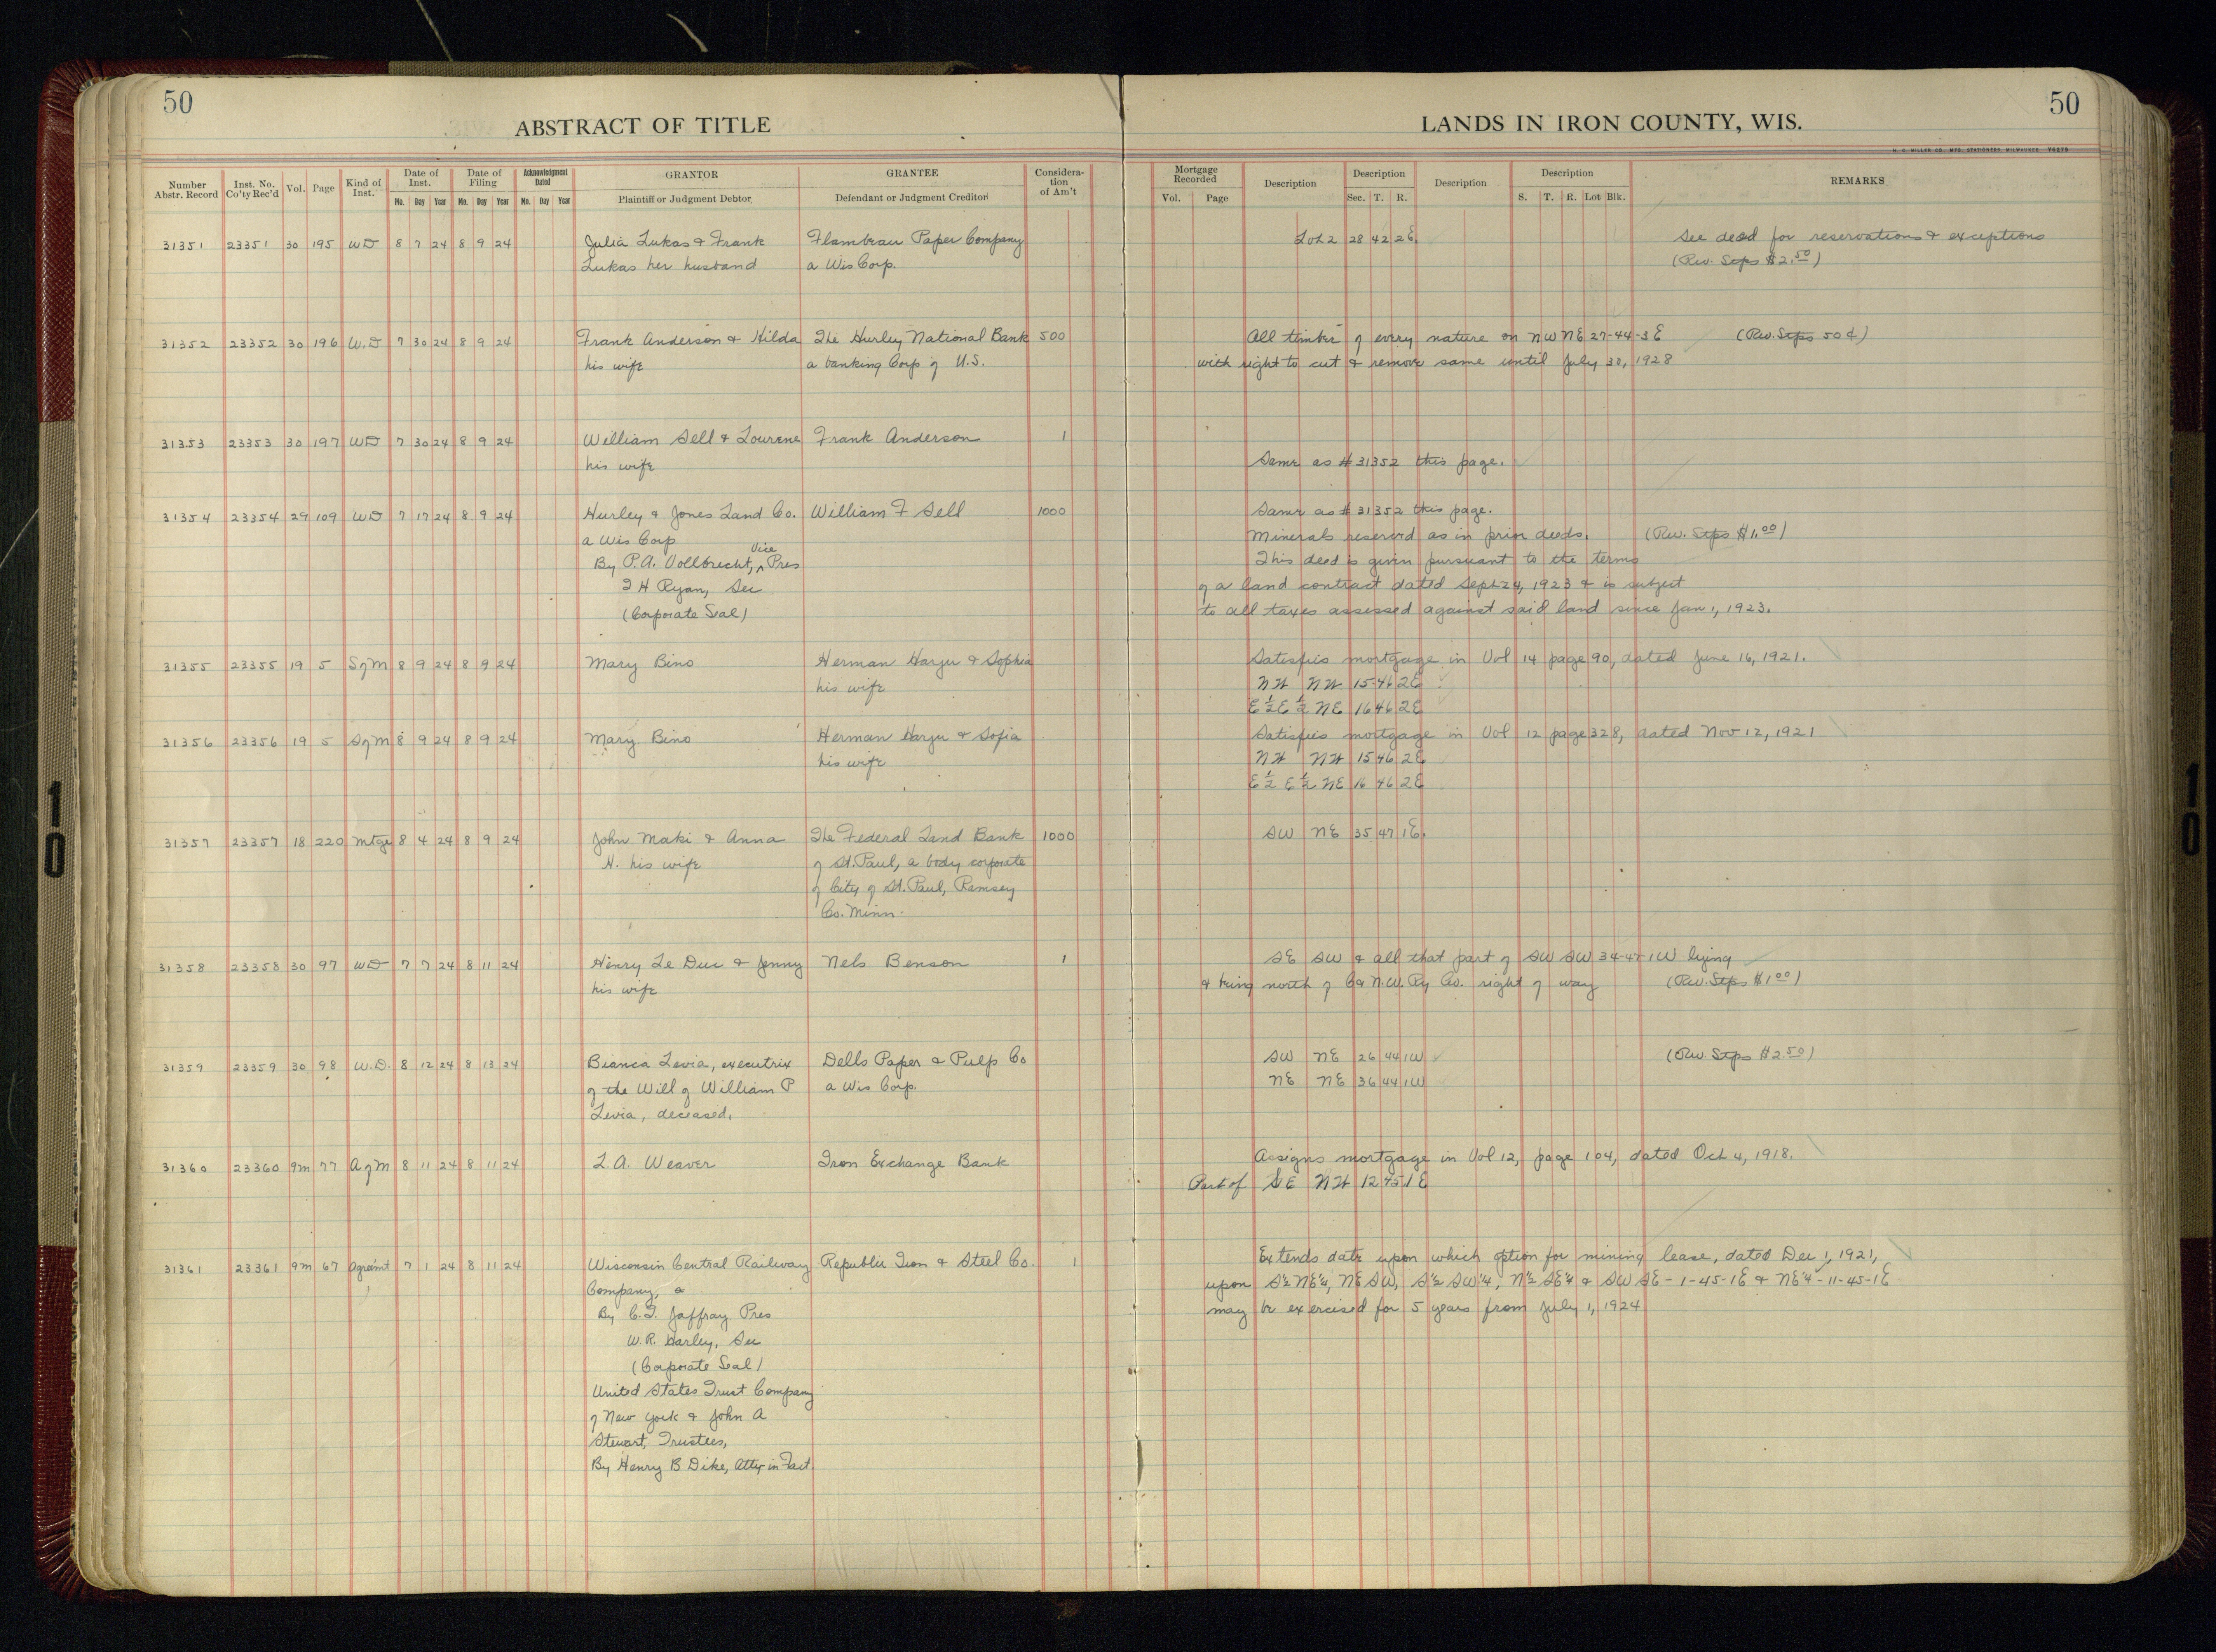 50
50
ABSTRACT OF TITLE
LANDS IN IRON COUNTY, WIS.
Number Abstr. Record Inst. No. Co'ty Rec'd Vol. Page Kind of Inst. Date of Inst. Mo. Day Year Date of Filing Mo. Day Year Acknowledgment Dated Mo. Day Year GRANTOR Plaintiff or Judgment Debtor GRANTEE Defendant or Judgment Creditor Consideration of Am't Mortgage Recorded Vol. Page Description Description Sec. T. R. Description Description S. T. R. Lot Blk. REMARKS
31351 23351 30 195 WD 8 7 24 8 9 24 Julia Lukas & Frank Flambeau Paper Company Lot 2 28 42 2E. See deed for reservations & exceptions
Lukas her husband a Wis Corp. (Rev. Stps $2.50)
31352 23352 30 196 W.D 7 30 24 8 9 24 Frank Anderson & Hilda The Hurley National Bank 500 All timber of every nature on NW NE 27-44-3E (Rev. Stps 50¢)
his wife a banking Corp of U.S. with right to cut & remove same until July 30, 1928
31353 23353 30 197 WD 7 30 24 8 9 24 William Sell & Lourene Frank Anderson 1
his wife Same as #31352 this page.
31354 23354 29 109 WD 7 17 24 8 9 24 Hurley & Jones Land Co. William F Sell 1000 Same as #31352 this page.
a Wis Corp Minerals reserved as in prior deeds. (Rev. Stps $1.00)
By P.A. Vollbrecht, Vice Pres This deed is given pursuant to the terms
T H Ryan, Sec of a land contract dated Sept 24, 1923 & is subject
(Corporate Seal) to all taxes assessed against said land since Jan 1, 1923.
31355 23355 19 5 S of M 8 9 24 8 9 24 Mary Bino Herman Harju & Sophia Satisfies mortgage in Vol 14 page 90, dated June 16, 1921.
his wife NW NW 15 46 2E
E½ E½ NE 16 46 2E
31356 23356 19 5 S of M 8 9 24 8 9 24 Mary Bino Herman Harju & Sofia Satisfies mortgage in Vol 12 page 328, dated Nov 12, 1921
his wife NW NW 15 46 2E
E½ E½ NE 16 46 2E
31357 23357 18 220 Mtge 8 4 24 8 9 24 John Maki & Anna The Federal Land Bank 1000 SW NE 35 47 1E.
H. his wife of St. Paul, a body corporate
of City of St. Paul, Ramsey
Co. Minn.
31358 23358 30 97 WD 7 7 24 8 11 24 Henry Le Duc & Jenny Nels Benson 1 SE SW & all that part of SW SW 34-47-1W lying
his wife & being north of C & N.W. Ry Co. right of way (Rev. Stps $1.00)
31359 23359 30 98 W.D. 8 12 24 8 13 24 Bianca Levia, executrix Dells Paper & Pulp Co SW NE 26 44 1W (Rev Stps $2.50)
of the Will of William P a Wis Corp. NE NE 36 44 1W
Levia, deceased.
31360 23360 9m 77 A of M 8 11 24 8 11 24 L.A. Weaver Iron Exchange Bank Assigns mortgage in Vol 12, page 104, dated Oct 4, 1918.
Part of SE NW 12 45 1E
31361 23361 9m 67 Agreemt 7 1 24 8 11 24 Wisconsin Central Railway Republic Iron & Steel Co. 1 Extends date upon which option for mining lease, dated Dec 1, 1921,
Company, a upon S½ NE¼, NE SW, S½ SW¼, N½ SE¼ & SW SE - 1-45-1E & NE¼ - 11-45-1E
By C.T. Jaffray Pres may be exercised for 5 years from July 1, 1924
W.R. Harley, Sec
(Corporate Seal)
United States Trust Company
of New York & John A
Stewart, Trustees,
By Henry B Dike, Atty in Fact.
10
10